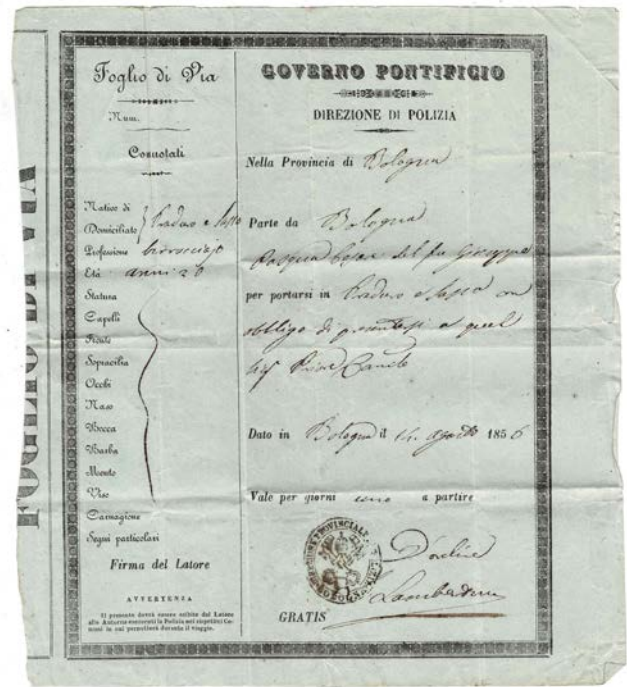 FOGLIO DI VIA
Foglio di Via
Num.
Connotati
Nativo di
Domiciliato
Professione birrocciajo
Età anni 20
Statura
Capelli
Fronte
Sopraciglia
Occhi
Naso
Bocca
Barba
Mento
Viso
Carnagione
Segni particolari
Firma del Latore
AVVERTENZA
Il presente dovrà essere esibito dal Latore
alle Autorità esercenti la Polizia nei rispettivi Co-
muni in cui pernotterà durante il viaggio.
GOVERNO PONTIFICIO
DIREZIONE DI POLIZIA
Nella Provincia di Bologna
Parte da Bologna
Pasqua Cesare del fu Giuseppe
per portarsi in Praduro e Sasso con
obbligo di presentarsi a quel
Dato in Bologna il 14 agosto 1856
Vale per giorni uno a partire
GRATIS